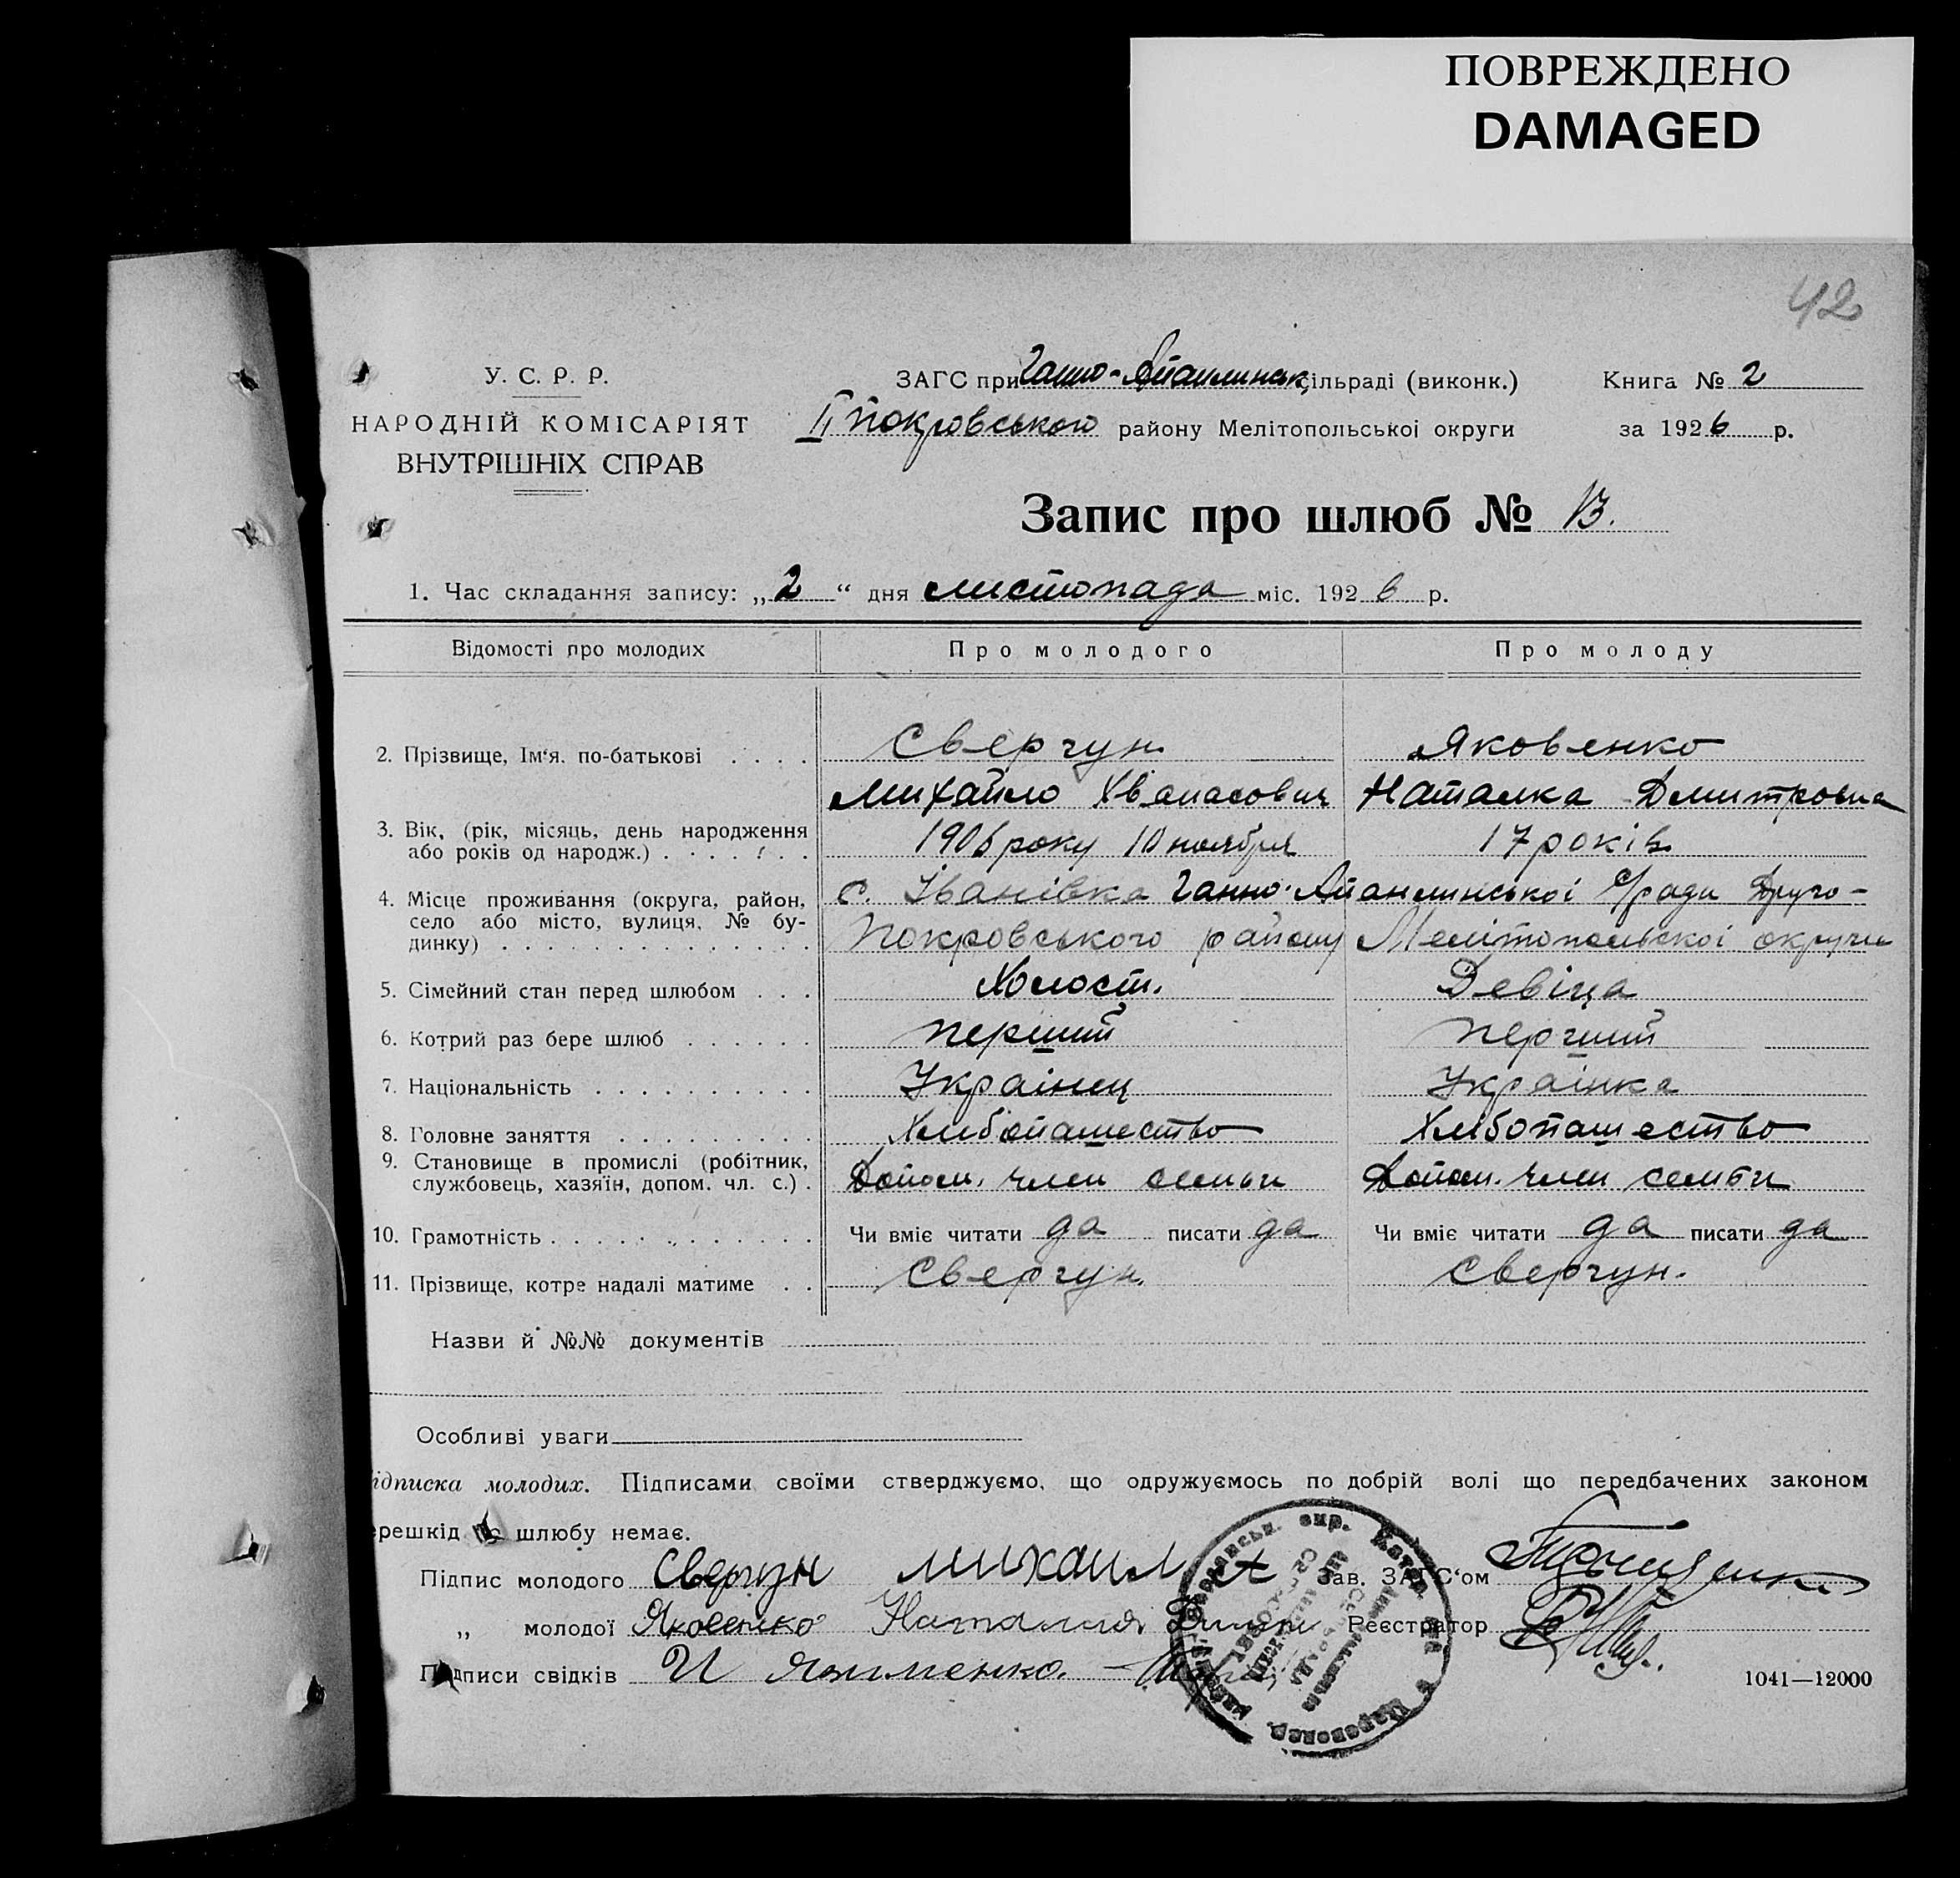 ПОВРЕЖДЕНО
DAMAGED
42
У. С. Р. Р.
НАРОДНІЙ КОМІСАРІЯТ
ВНУТРІШНІХ СПРАВ
ЗАГС при Ганно- сільраді (виконк.)
II Покровського району Мелітопольської округи
Книга № 2
за 1926 р.
Запис про шлюб № 13.
1. Час складання запису: „2“ дня листопада міс. 1926 р.
Відомості про молодих Про молодого Про молоду
2. Прізвище, Ім'я. по-батькові . . . . Свергун Яковенко
Михайло Хванасович Наталка Дмитровна
3. Вік, (рік, місяць, день народження або років од народж.) . . . . . . 1906 року 10 ноября 17 років
4. Місце проживання (округа, район, село або місто, вулиця, № будинку) . . . . с. Іванівка Ганно- с/ради Друго-
Покровського району Мелітопольскоі округи
5. Сімейний стан перед шлюбом . . . Холост. Девіца
6. Котрий раз бере шлюб . . . . . . перший перший
7. Національність . . . . . . . . . . Украінец Украінка
8. Головне заняття . . . . . . . . . Хлибопашество Хлібопашество
9. Становище в промислі (робітник, службовець, хазяїн, допом. чл. с.) . Допом. член семьи Допом. член семьи
10. Грамотність . . . . . . . . . . . . Чи вміє читати да писати да Чи вміє читати да писати да
11. Прізвище, котре надалі матиме . . Свергун. Свергун.
Назви й №№ документів
Особливі уваги
ідписка молодих. Підписами своїми стверджуємо, що одружуємось по добрій волі що передбачених законом
ерешкід до шлюбу немає.
Підпис молодого Свергун Михаил Зав. ЗАГС'ом
„ молодої Яковенко Наталия Реєстратор
Підписи свідків И Якименко.
1041—12000